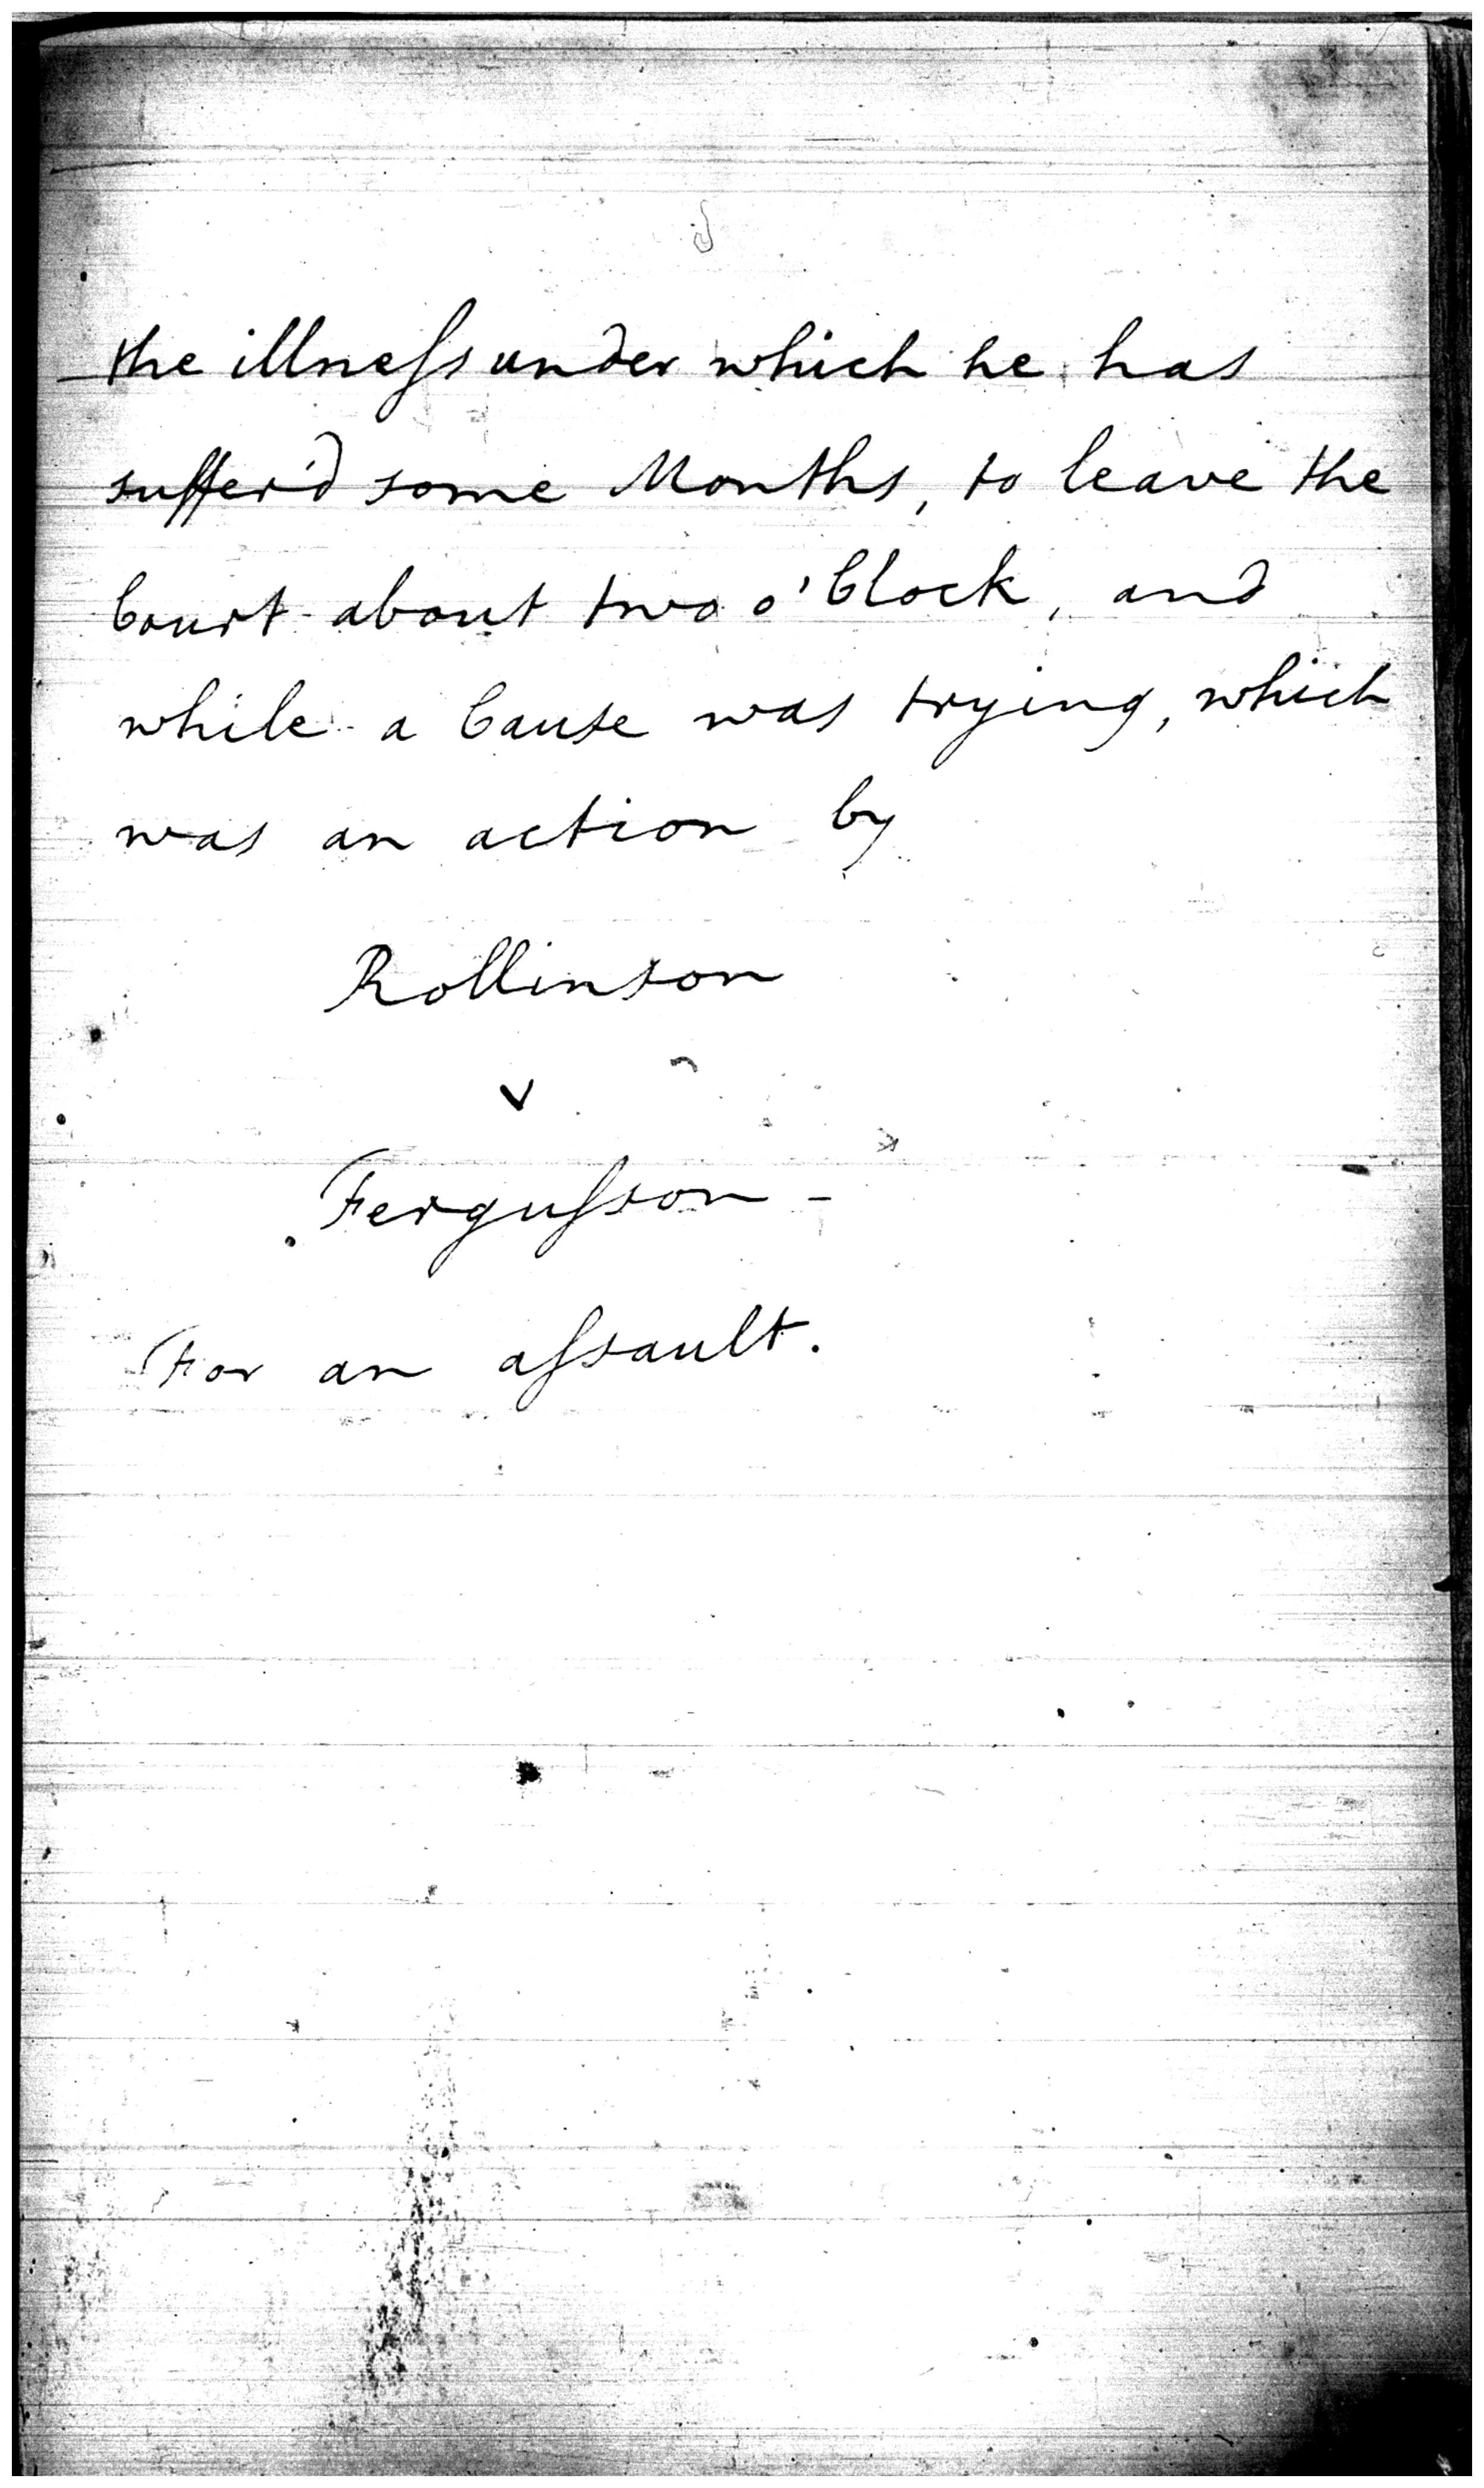 the illneſs under which he has
suffer'd some Months, to leave the
Court about two o'Clock, and
while a Cause was trying, which
was an action by
Rollinson
v
Ferguſson -
For an aſsault.